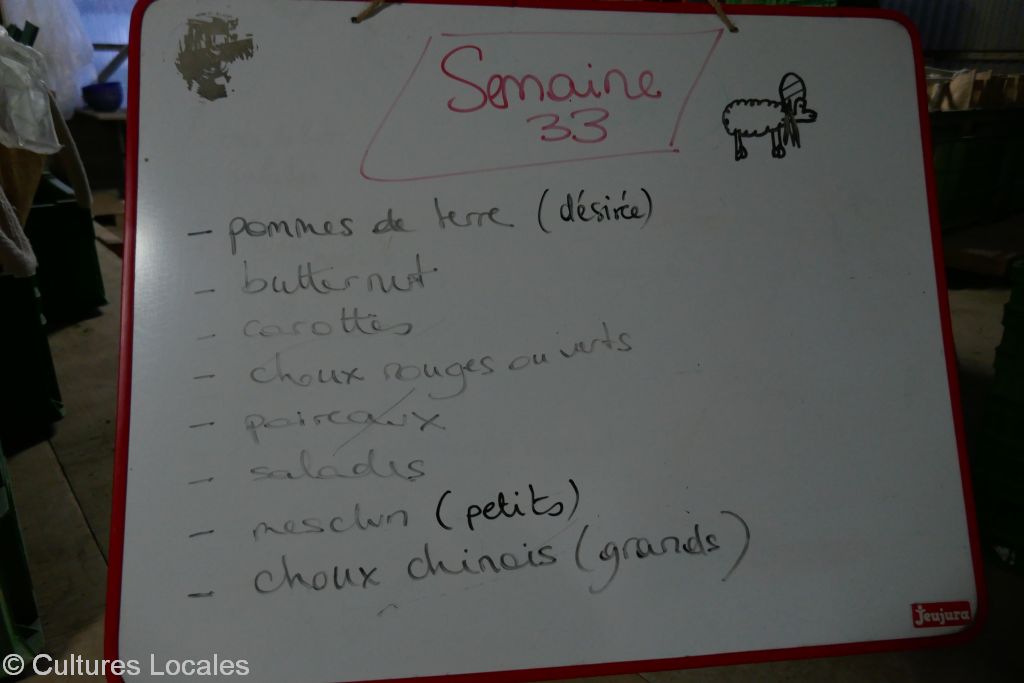 Semaine
33
- pommes de terre (désirée)
- butternut
- carottes
- choux rouges ou verts
- poireaux
- salades
- mesclun (petits)
- choux chinois (grands)
Jeujura
© Cultures Locales